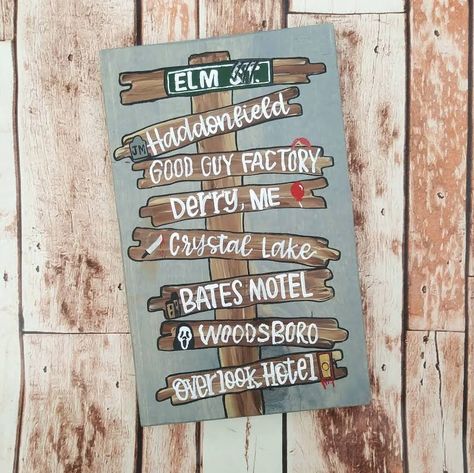 ELM St.
Haddonfield
JM
GOOD GUY FACTORY
Derry, ME
Crystal Lake
BATES MOTEL
WOODSBORO
Overlook Hotel